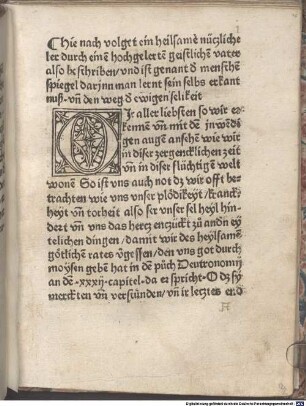 Hie nach volget ein heilsame nüczliche
ler durch einē hochgelertē geistlichē vater
also beschriben/vnd ist genant d̄ menschē
spiegel darjnn man lernt sein selbs erkant
nuß. vn̄ den weg d̄ ewigen selikeit
Ir aller liebsten so wir er⸗
kennē vn̄ mit dē jnwēdi
gen augē ansehē wie wir
in diser zergencklichen zeit
vn̄ in diser flüchtigē welt
wonē So ist vns auch not dz wir offt be⸗
trachten wie vns vnser plödikeyt/kranck⸗
heyt vn̄ torheit also ser vnser sel heyl hin⸗
dert vn̄ vns das hercz enzückt zů andn̄ ey
telichen dingen/damit wir des heylsamē
götlichē rates v̓gessen/den vns got durch
moysen gebē hat in dē půch Deutronomij
an dē .xxxij. capitel. da er spricht. O dz sy
merckten vn̄ verstünden/vn̄ ir lecztes end